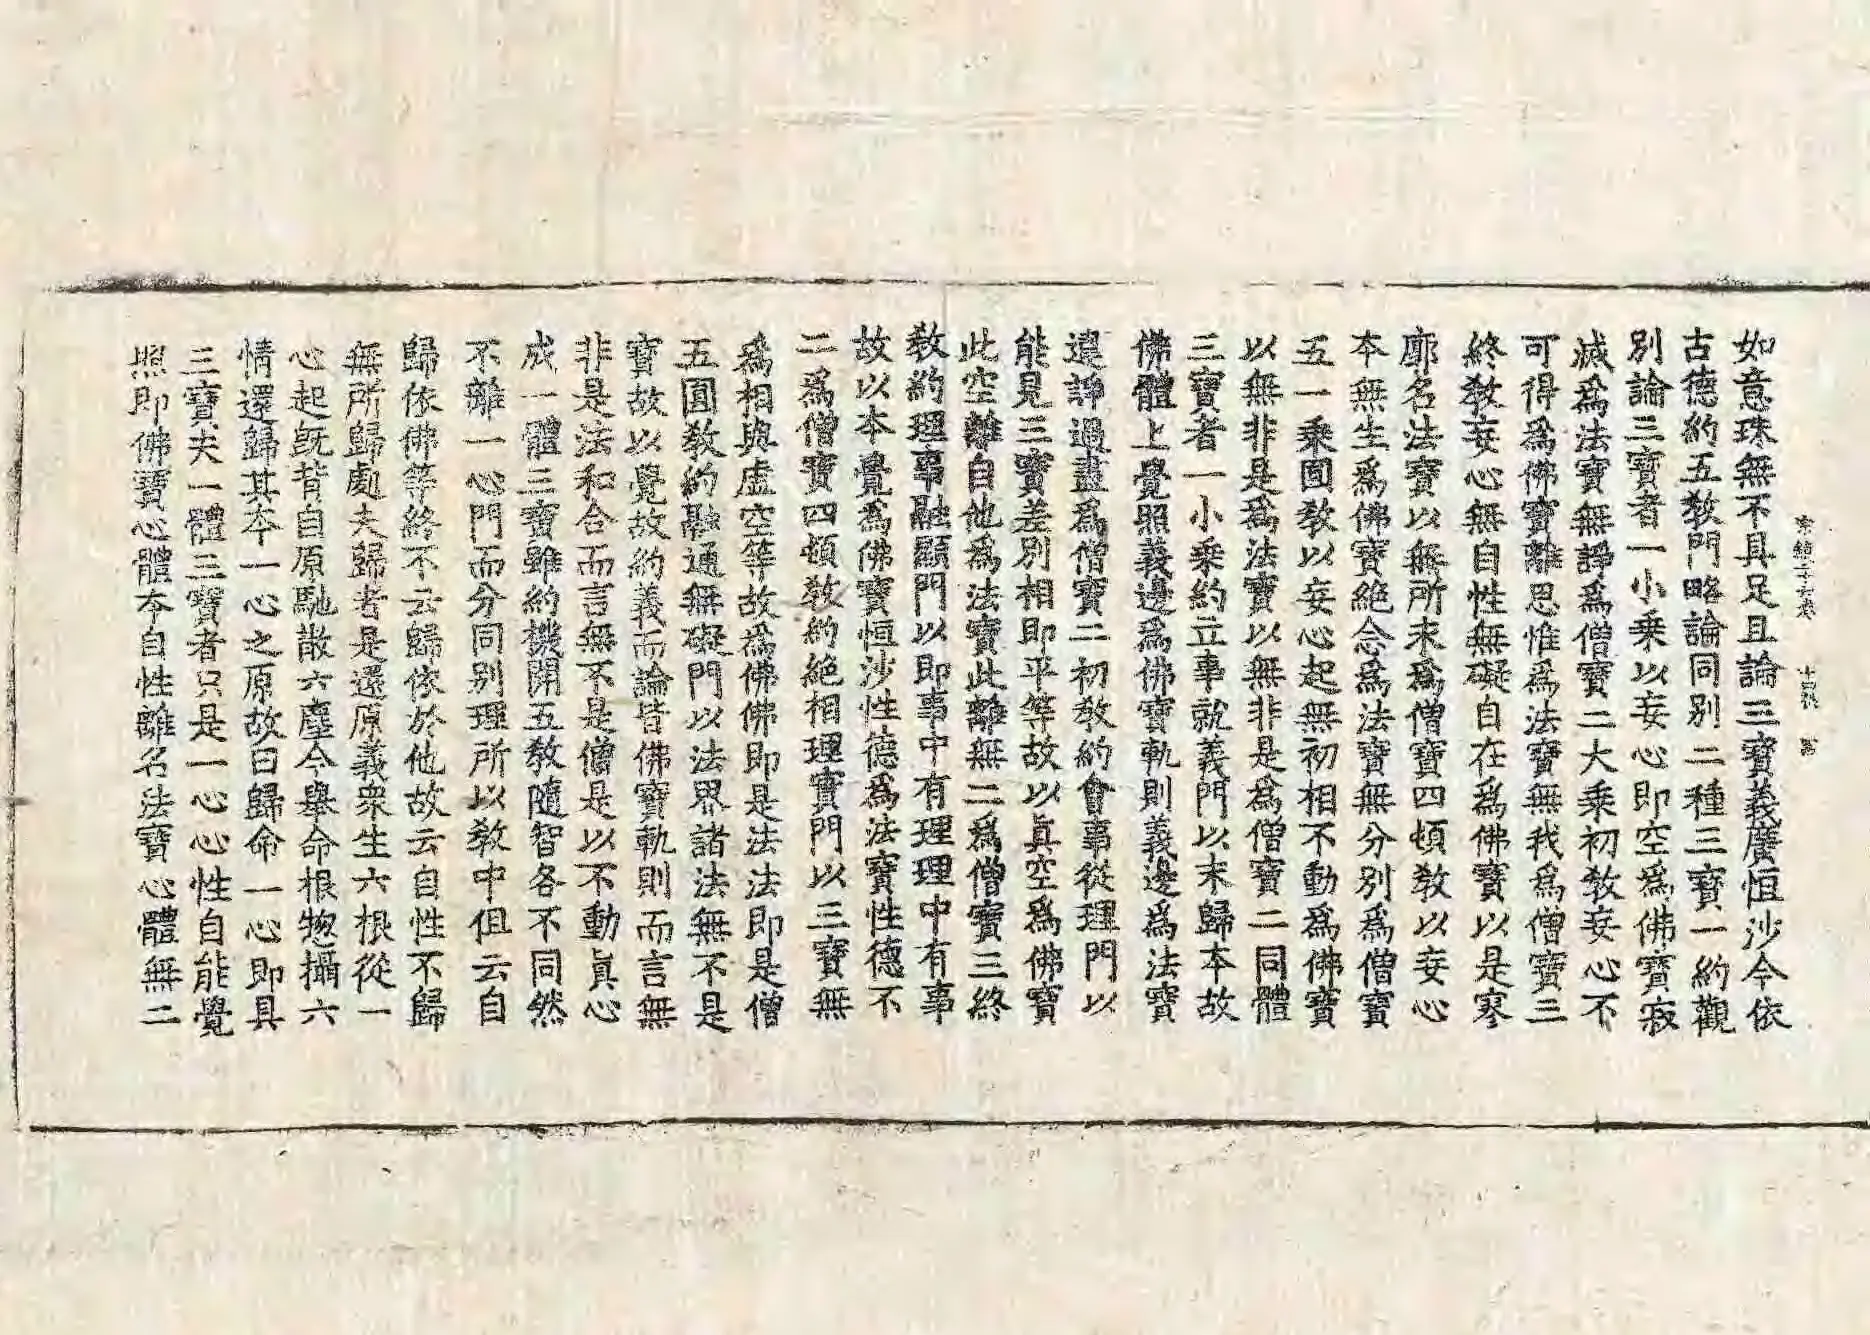 宗鏡二十六卷 十
如意珠無不具足且論三寶義廣恒沙今依
古德約五敎門略論同別二種三寶一約觀
別論三寶者一小乗以妄心即空爲佛寶寂
滅爲法寶無諍爲僧寶二大乗初敎妄心不
可得爲佛寶離思惟爲法寶無我爲僧寶三
終敎妄心無自性無礙自在爲佛寶以是寥
廓名法寶以無所末爲僧寶四頓敎以妄心
本無生爲佛寶絶念爲法寶無分別爲僧寶
五一乗圓敎以妄心起無初相不動爲佛寶
以無非是爲法寶以無非是爲僧寶二同體
三寶者一小乗約立事就義門以末歸本故
佛體上覺照義邊爲佛寶軌則義邊爲法寶
違諍過盡爲僧寶二初敎約會事從理門以
能見三寶差別相即平等故以眞空爲佛寶
此空離自他爲法寶此離無二爲僧寶三終
敎約理事融顯門以即事中有理理中有事
故以本覺爲佛寶恒沙性德爲法寶性德不
二爲僧寶四頓敎約絶相理實門以三寶無
爲相與虛空等故爲佛佛即是法法即是僧
五圓敎約融通無礙門以法界諸法無不是
寶故以覺故約義而論皆佛寶軌則而言無
非是法和合而言無不是僧是以不動眞心
成一體三寶雖約機開五敎隨智各不同然
不離一心門而分同別理所以敎中但云自
歸依佛等終不云歸依於他故云自性不歸
無所歸處夫歸者是還原義衆生六根從一
心起旣背自原馳散六塵今舉命根惣攝六
情還歸其本一心之原故曰歸命一心即具
三寶夫一體三寶者只是一心心性自能覺
照即佛寶心體本自性離名法寶心體無二